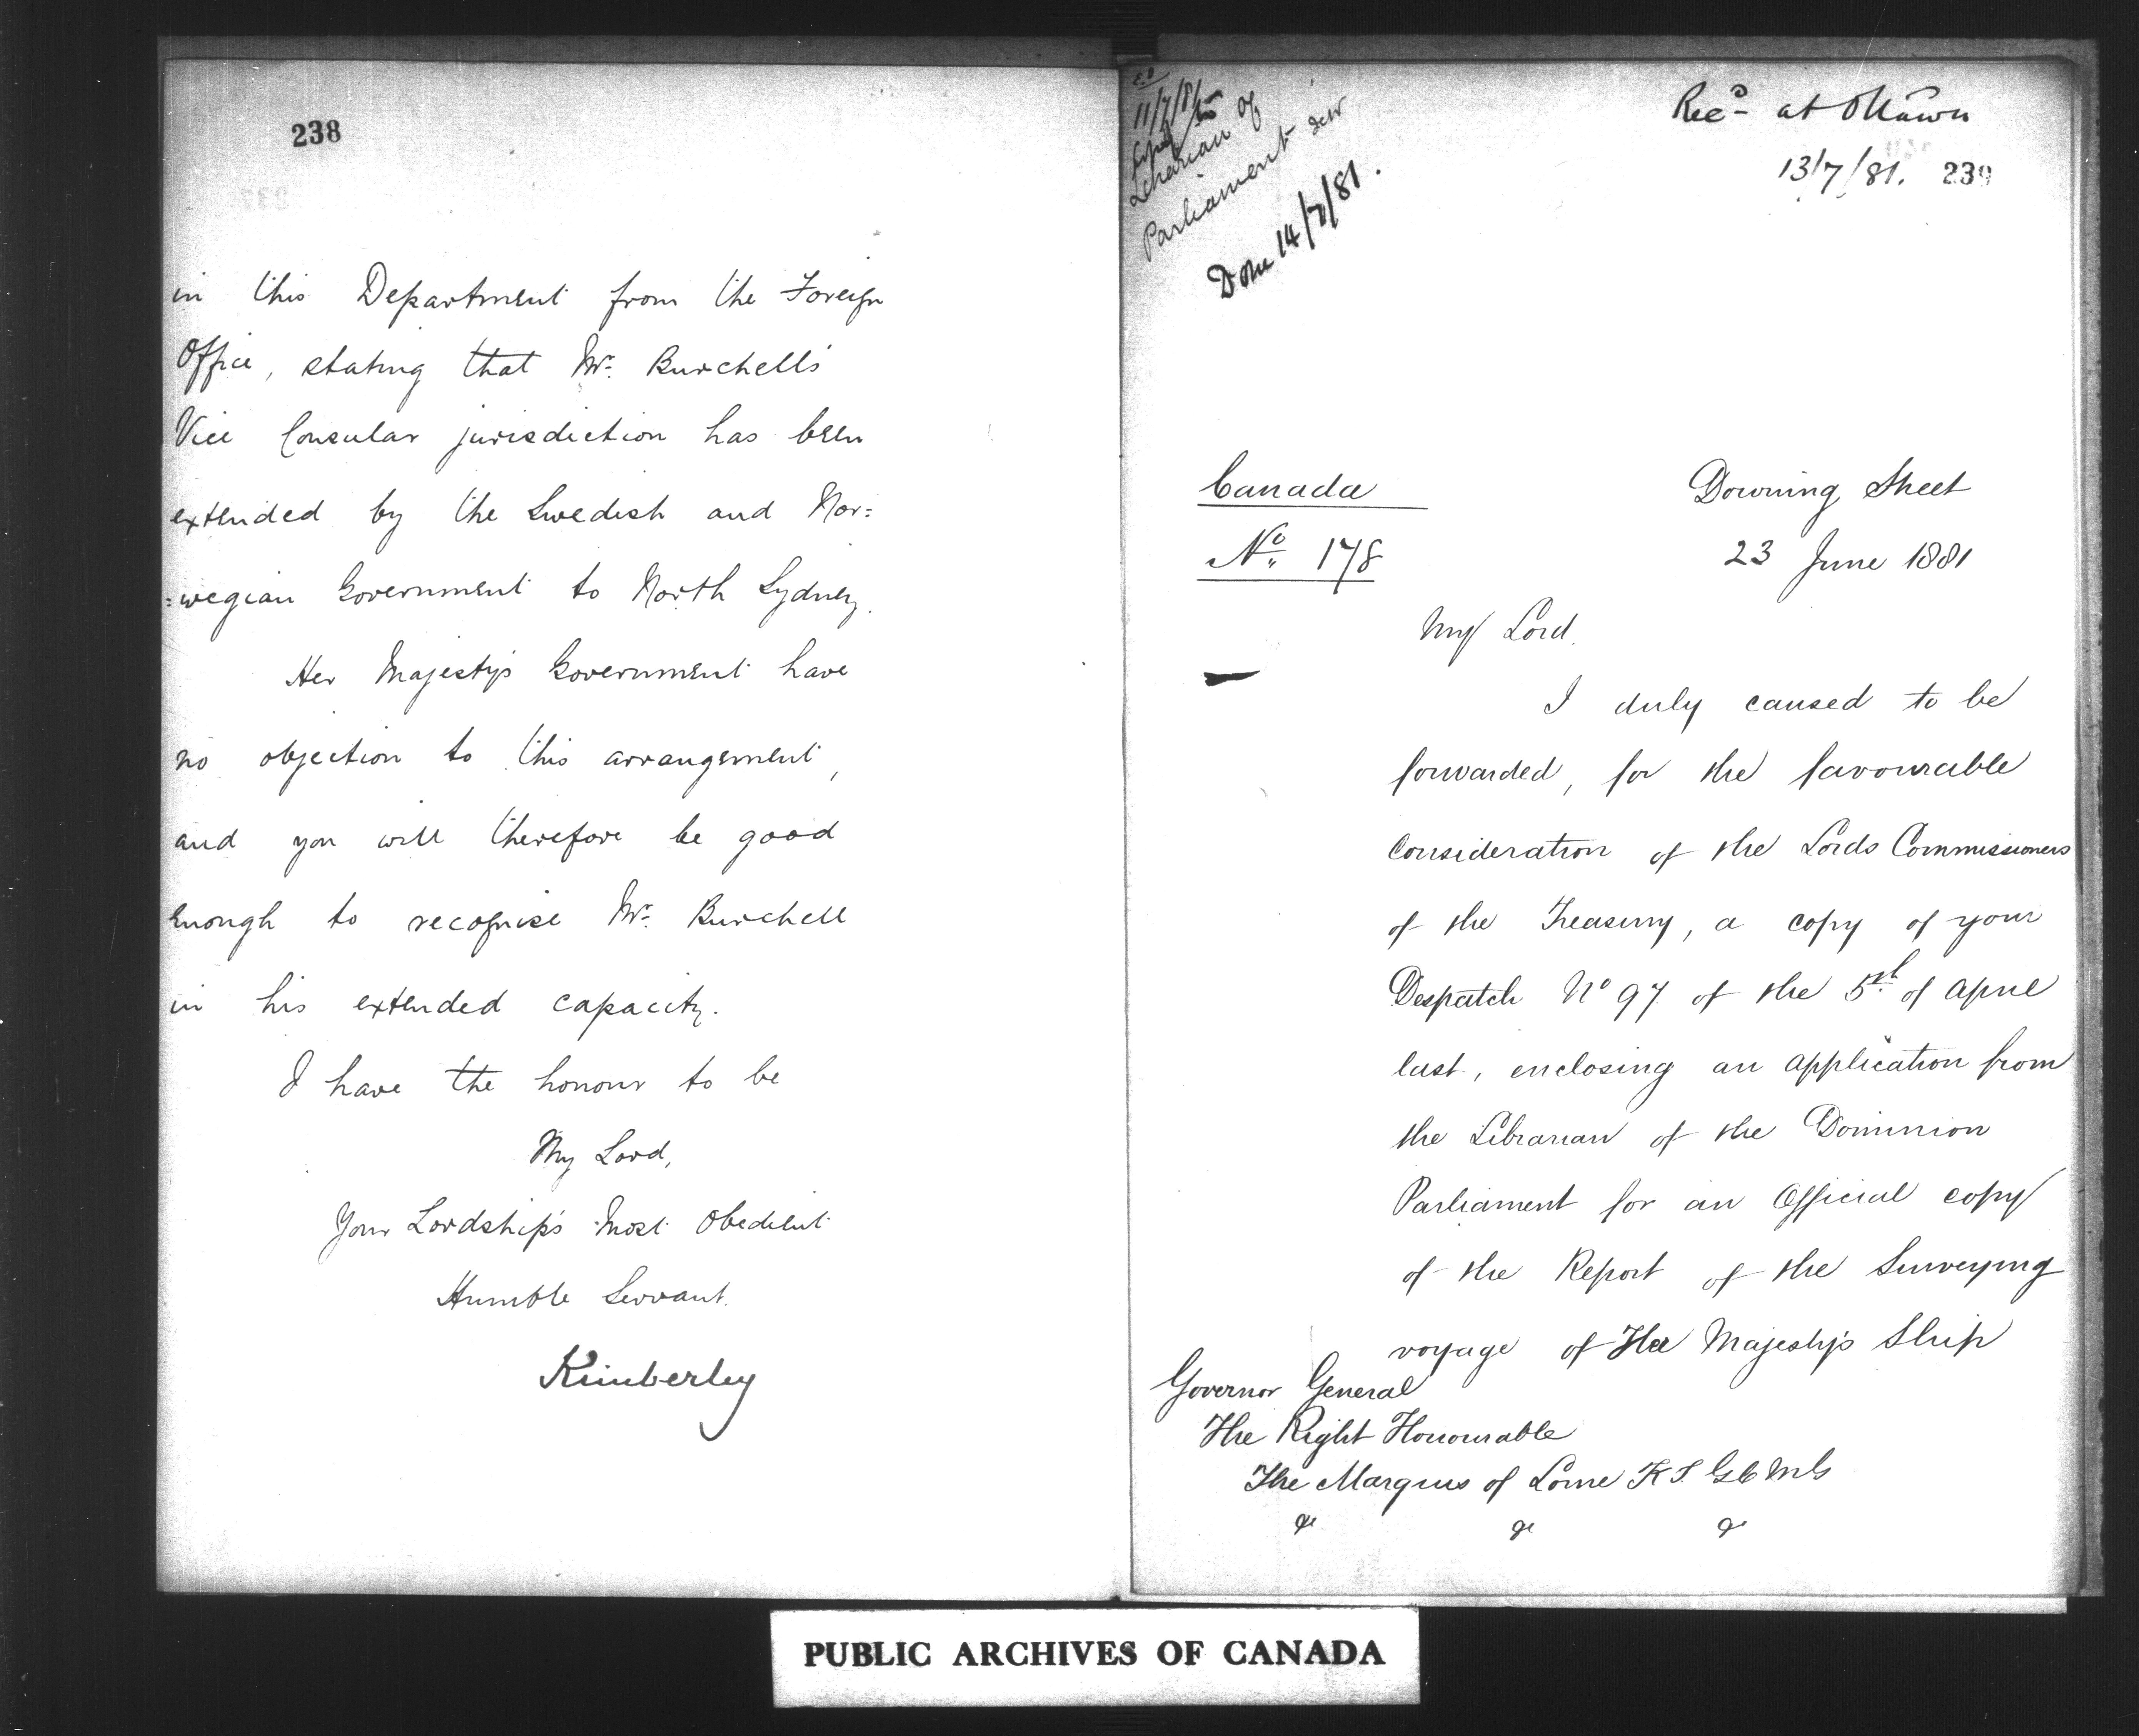 238
in this Department from the Foreign
Office, stating that Mr. Burchell's
Vice Consular jurisdiction has been
extended by the Swedish and Nor=
=wegian Government to North Sydney.
Her Majesty's Government have
no objection to this arrangement,
and you will therefore be good
enough to recognise Mr. Burchell
in his extended capacity.
I have the honour to be
My Lord,
Your Lordship's Most Obedient
Humble Servant.
Kimberley
11/7/81
Librarian of
Parliament
Done 14/7/81.
Recd at Ottawa
13/7/81. 239
Canada
No. 178
Downing Street
23 June 1881
My Lord.
I duly caused to be
forwarded, for the favourable
consideration of the Lords Commissioners
of the Treasury, a copy of your
Despatch No 97 of the 5th of April
last, enclosing an application from
the Librarian of the Dominion
Parliament for an Official copy
of the Report of the Surveying
voyage of Her Majesty's Ship
Governor General
The Right Honourable
The Marquis of Lorne K T. G C M G
&c &c &c
PUBLIC ARCHIVES OF CANADA